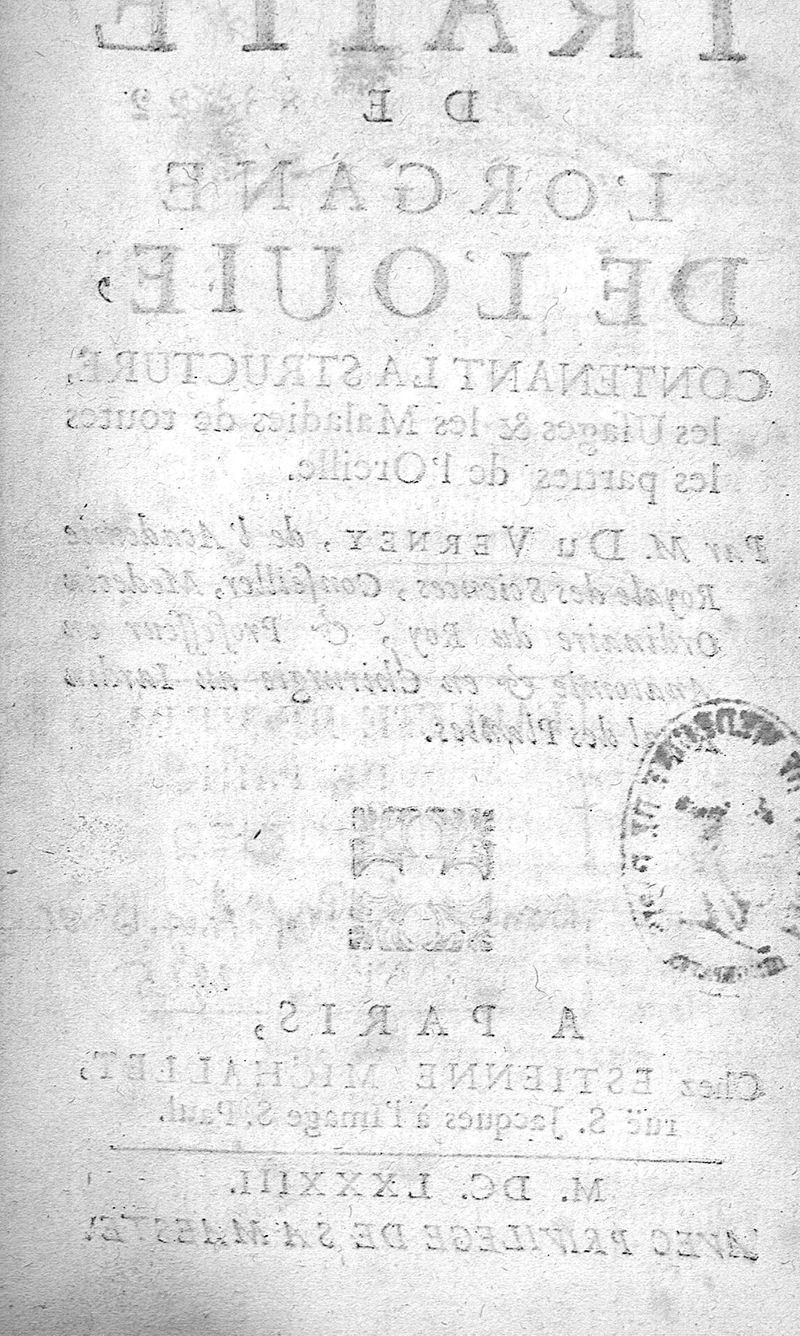 TRAITÉ
DE
L'ORGANE
DE L'OUIE,
CONTENANT LA STRUCTURE,
les Usages & les Maladies de toutes
les parties de l'Oreille.
Par M. DU VERNEY, de l'Academie
Royale des Sciences, Conseiller, Medecin
Ordinaire du Roy, & Professeur en
Anatomie & en Chirurgie au Iardin
des Plantes.
A PARIS,
Chez ESTIENNE MICHALLET,
ruë S. Jacques à l'image S. Paul.
M. DC. LXXXIII.
AVEC PRIVILEGE DE SA MAIESTE'.